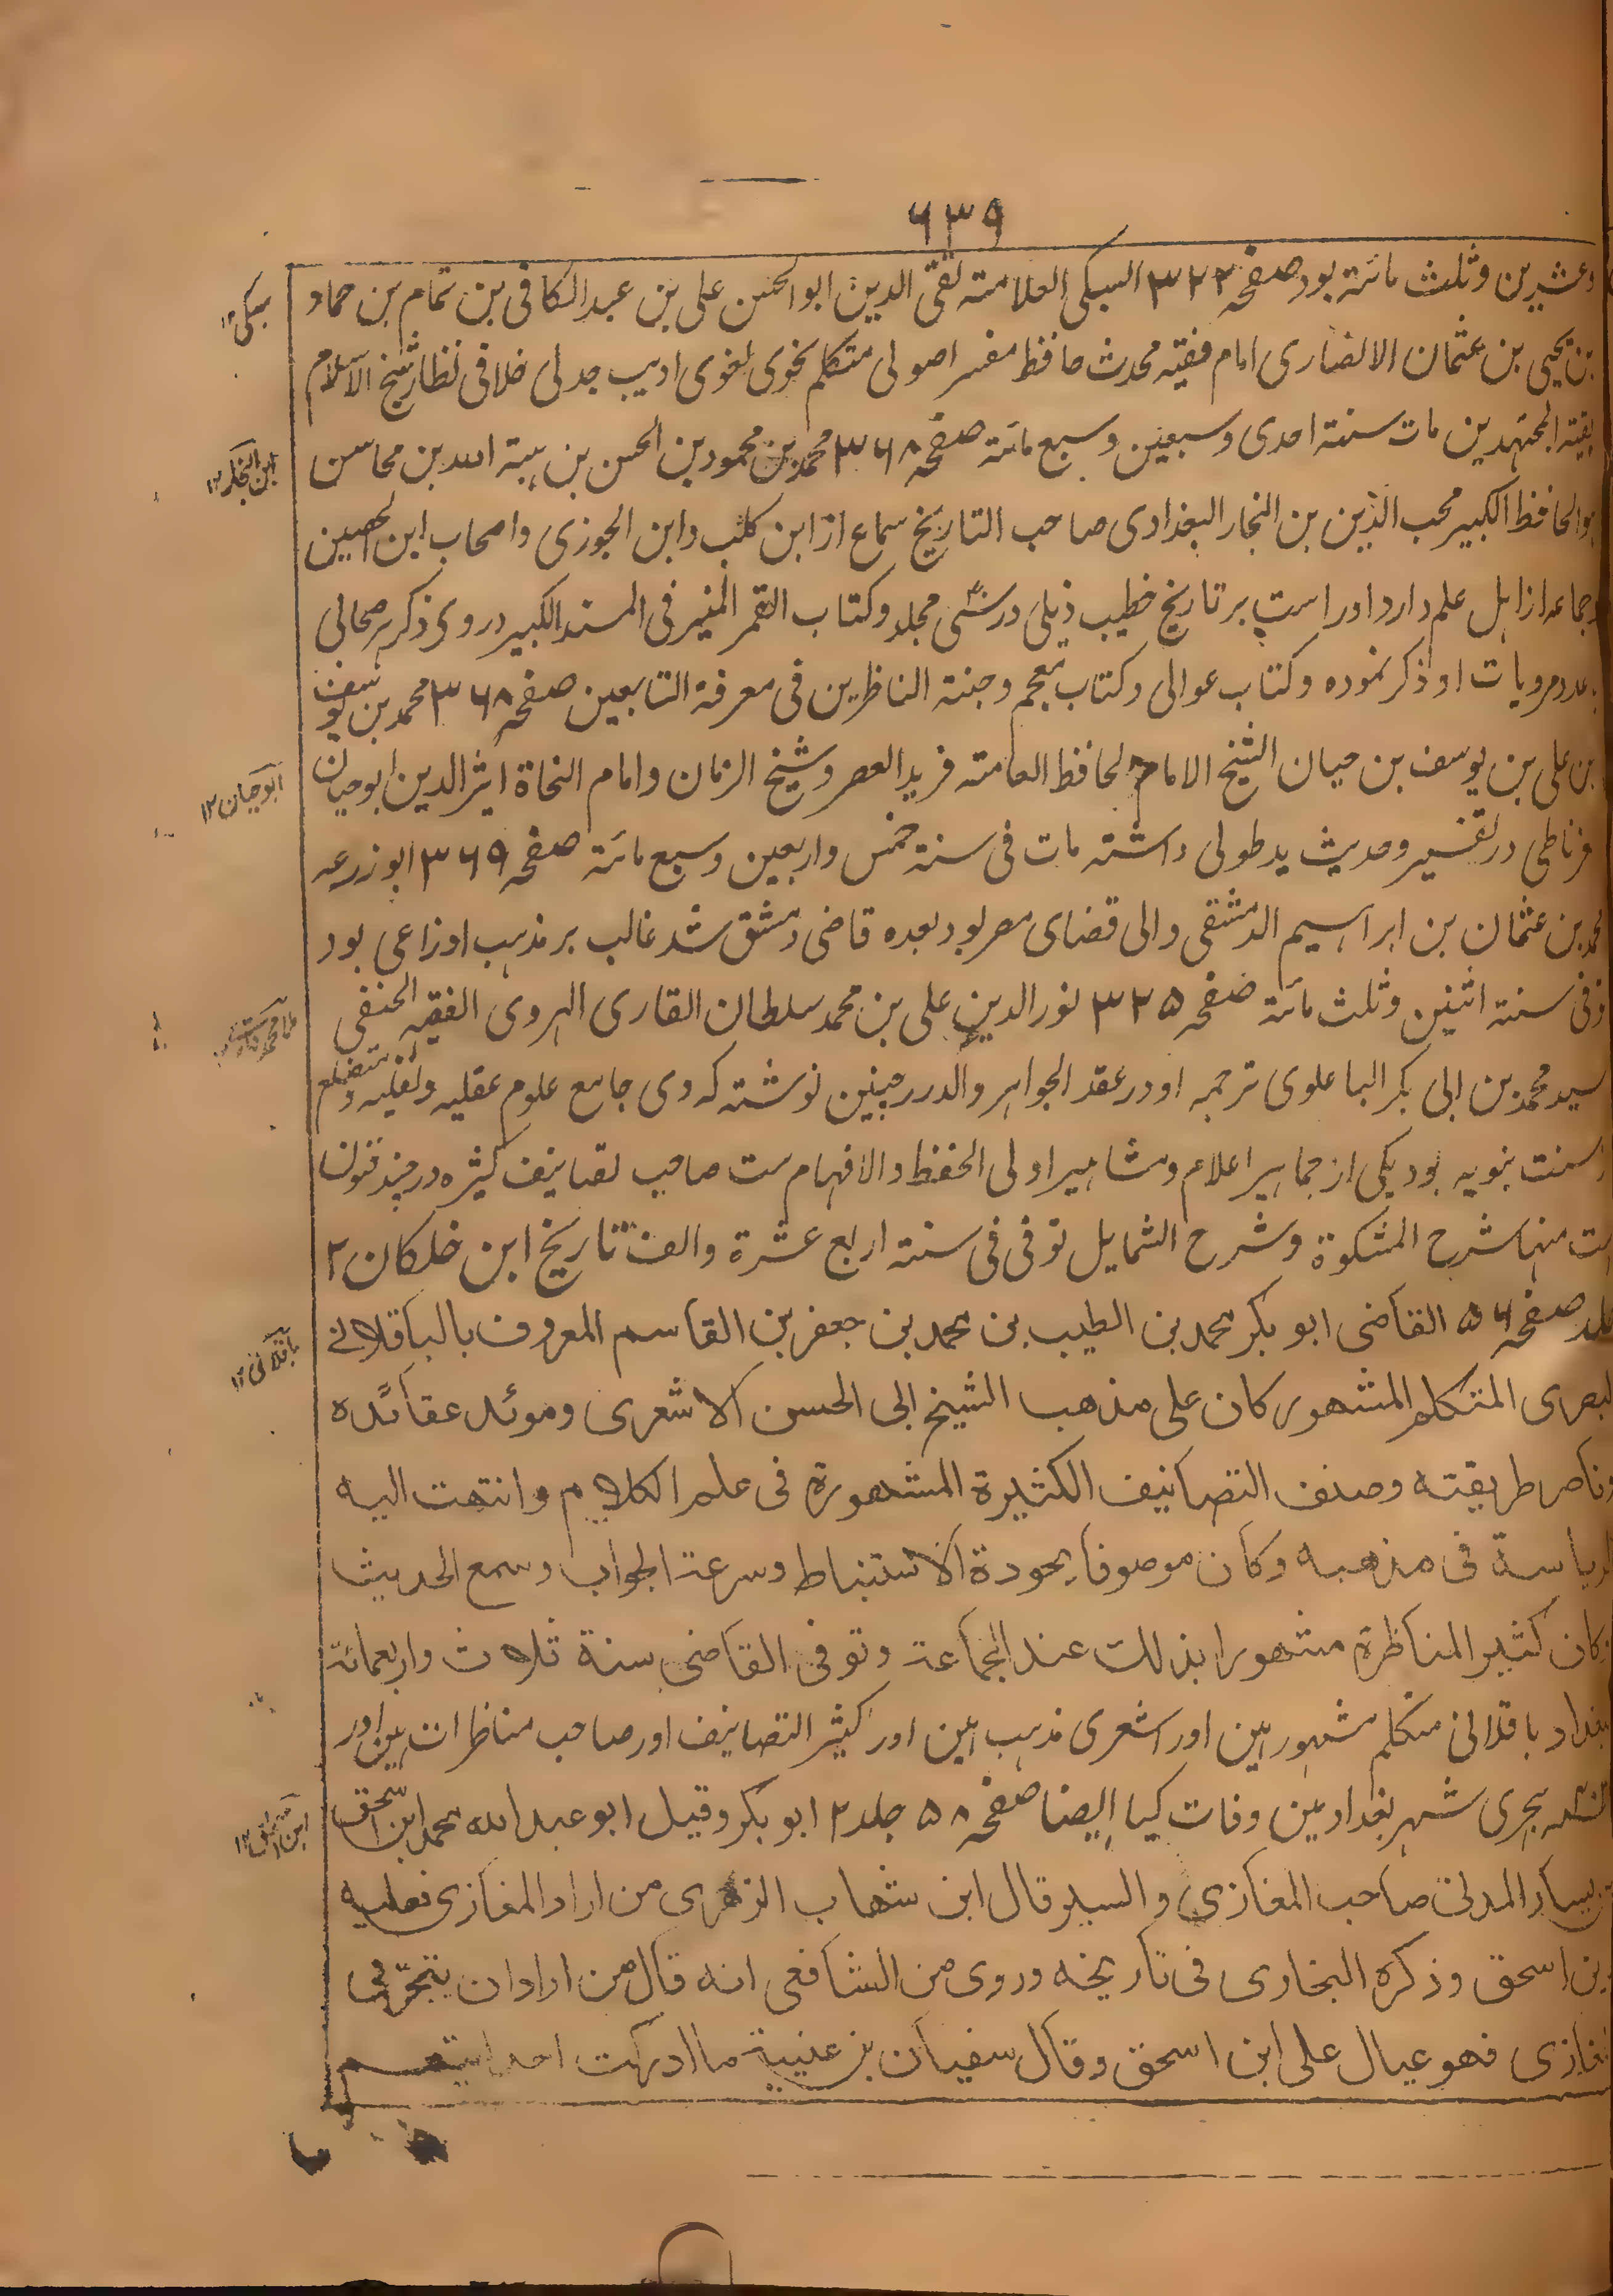 ۶۳۹
وعشرین وثلث مائتہ بود صفحہ ۳۲۲ السبکی العلامتہ تقی الدین ابو الحسن علی بن عبد الکافی بن تمام بن حماد
بن یحیی بن عثمان الانصاری امام فقیہ محدث حافظ مفسر اصولی متکلم نحوی لغوی ادیب جدلی خلافی نظار شیخ الاسلام
بقیتہ المجتہدین مات سنتہ احدی وسبعین وسبع مائتہ صفحہ ۳۶۸ محمد بن محمود بن الحسن بن ہبتہ اللہ بن محاسن
ہو الحافظ الکبیر محب الدین بن النجار البغدادی صاحب التاریخ سماع از ابن کلب وابن الجوزی واصحاب ابن الحصین
وجماعہ از اہل علم دارد اوراست بر تاریخ خطیب ذیلی در سی مجلد وکتاب القمر المنیر فی المسند الکبیر دروی ذکر ہر صحابی
بعدد مرویات او ذکر نمودہ وکتاب عوالی وکتاب معجم وجنتہ الناظرین فی معرفۃ التابعین صفحہ ۳۶۸ محمد بن یوسف
بن علی بن یوسف بن حیان الشیخ الامام الحافظ العامتہ فرید العصر وشیخ الزمان وامام النحاۃ اثیر الدین ابو حیان
غرناطی در تفسیر وحدیث ید طولی داشتہ مات فی سنۃ خمس واربعین وسبع مائتہ صفحہ ۳۶۹ ابو زرعہ
محمد بن عثمان بن ابراہیم الدمشقی والی قضای مصر بود بعدہ قاضی دمشق شد غالب بر مذہب اوزاعی بود
توفی سنتہ اثنین وثلث مائتہ صفحہ ۳۲۵ نور الدین علی بن محمد سلطان القاری الہروی الفقیہ الحنفی
سید محمد بن ابی بکر البا علوی ترجمہ او در عقد الجواہر والدرر چنین نوشتہ کہ وی جامع علوم عقلیہ ونقلیہ ومتضلع
از سنت نبویہ بود یکی از جماہیر اعلام ومشاہیر اولی الحفظ والافہام ست صاحب تصانیف کثیرہ در چند فنون
ست منہا شرح المشکوۃ وشرح الشمایل توفی فی سنتہ اربع عشرۃ والف تاریخ ابن خلکان ۲
جلد صفحہ ۵۶ القاضی ابو بکر محمد بن الطیب بن محمد بن جعفر بن القاسم المعروف بالباقلانے
البصری المتکلم المشهور کان علی مذهب الشیخ ابی الحسن الاشعری وموئد عقائده
وناصر طریقته وصنف التصانیف الکثیرة المشهورة فی علم الکلام وانتهت الیه
الریاسة فی مذهبه وکان موصوفا بجودة الاستنباط وسرعة الجواب وسمع الحدیث
وکان کثیر المناظرة مشهورا بذلک عند الجماعة وتوفی القاضی سنة ثلاث واربعمائة
ببغداد باقلانی متکلم مشہور ہین اور اشعری مذہب ہین اور کثیر التصانیف اور صاحب مناظرات ہین اور
ہجری شہر بغداد مین وفات کیا ایضا صفحہ ۵۸ جلد ۲ ابو بکر وقیل ابو عبد الله محمد ابن اسحق
بن یسار المدنی صاحب المغازی والسیر قال ابن شهاب الزهری من اراد المغازی فعلیه
بابن اسحق وذکره البخاری فی تاریخه وروی من الشافعی انه قال من اراد ان یتبحر فی
المغازی فهو عیال علی ابن اسحق وقال سفیان بن عنیبة ما ادرکت احدا یتهم
سبکی ۱۲
ابن النجار ۱۲
ابو حیان ۱۲
باقلانی ۱۲
ابن اسحق ۱۲